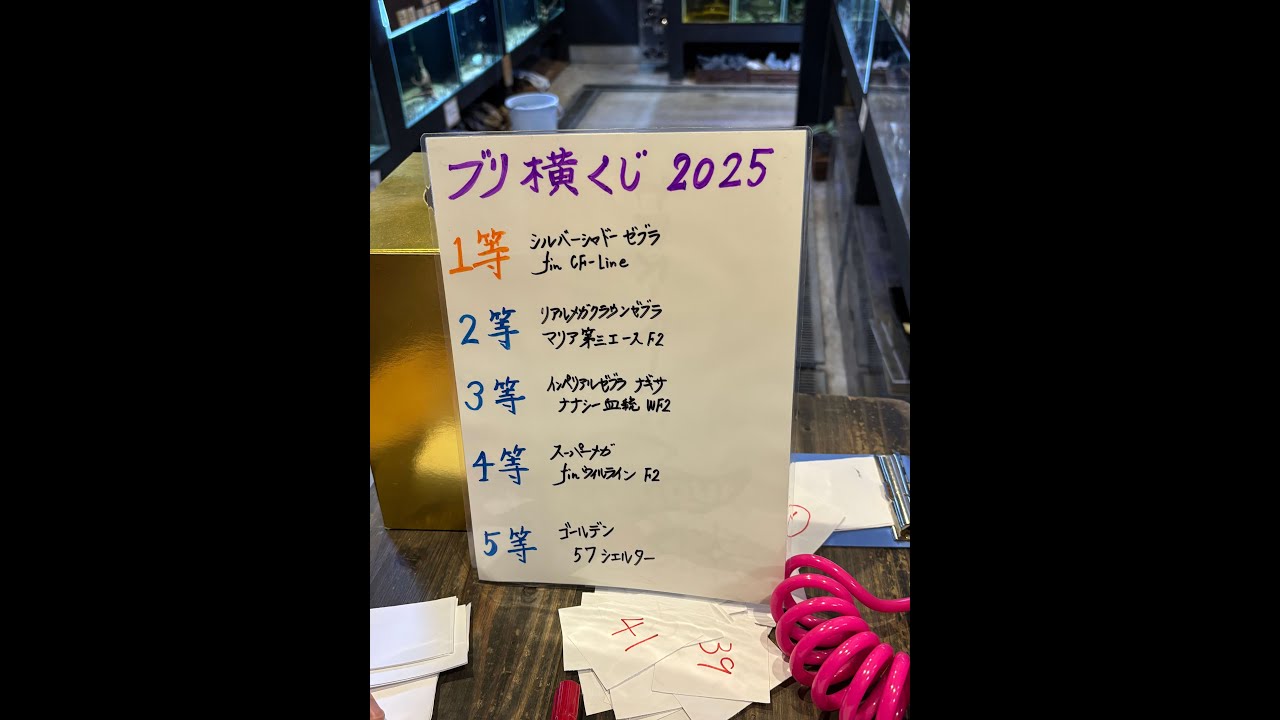 ブリ横くじ 2025
1等 シルバーシャドーゼブラ
fin CF-Line
2等 リアルメガクラウンゼブラ
マリア第三エース F2
3等 インペリアルゼブラ ナギサ
ナナシー血統 WF2
4等 スーパーメガ
fin ウィルライン F2
5等 ゴールデン
57シェルター
41
39